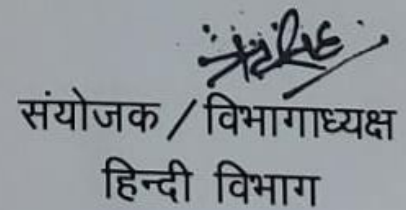 संयोजक / विभागाध्यक्ष
हिन्दी विभाग